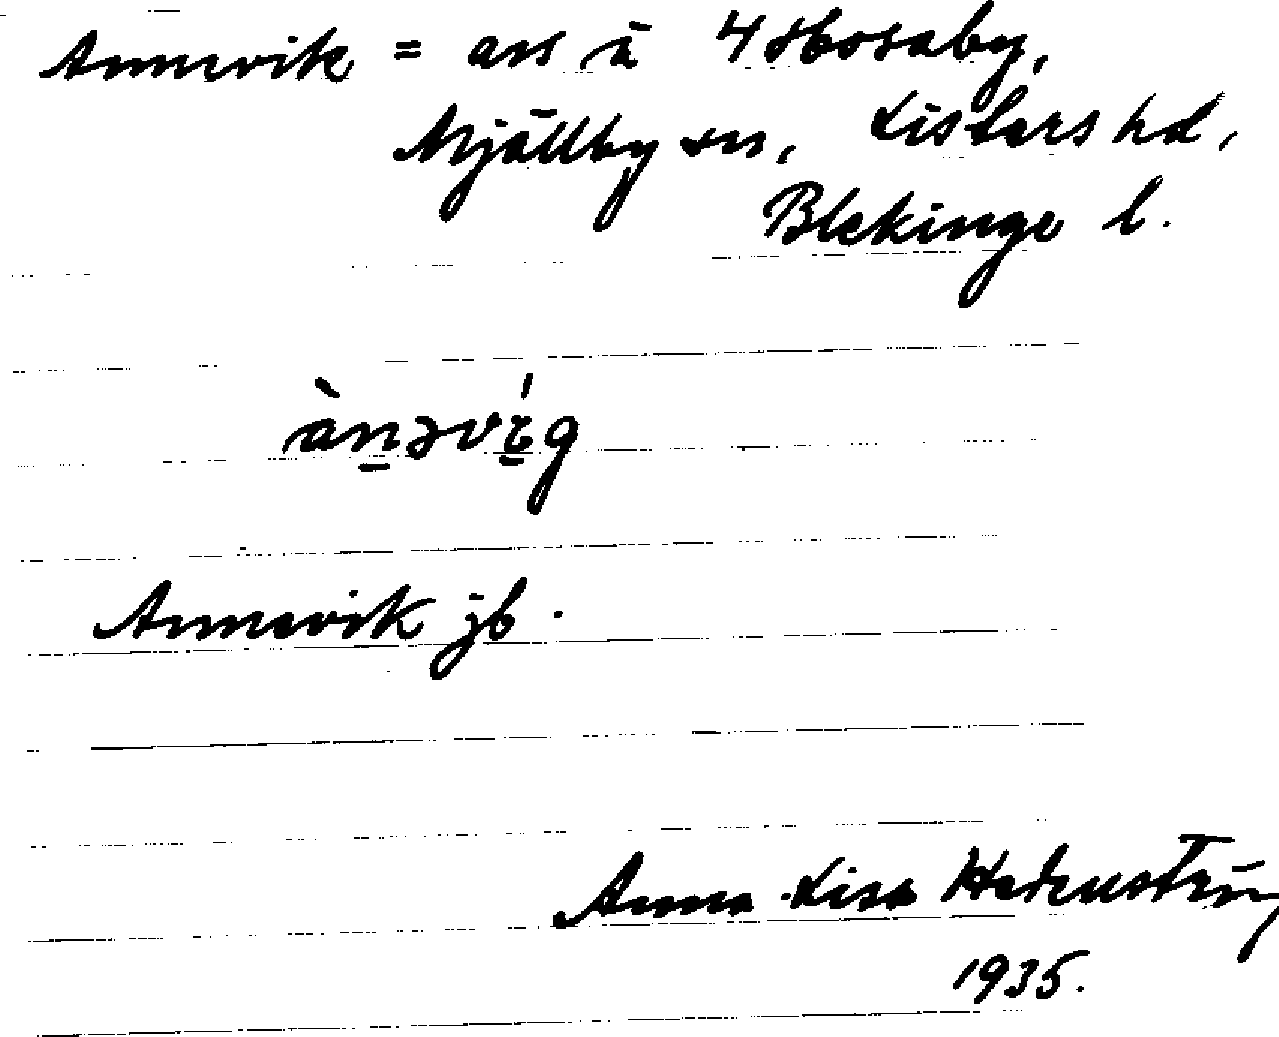 Annevik = avs å 4 Hosaby,
Mjällby sn, Listers hd,
Blekinge l.
ànəvíg
Annevik jb.
Anna-Lisa Hedenström
1935.